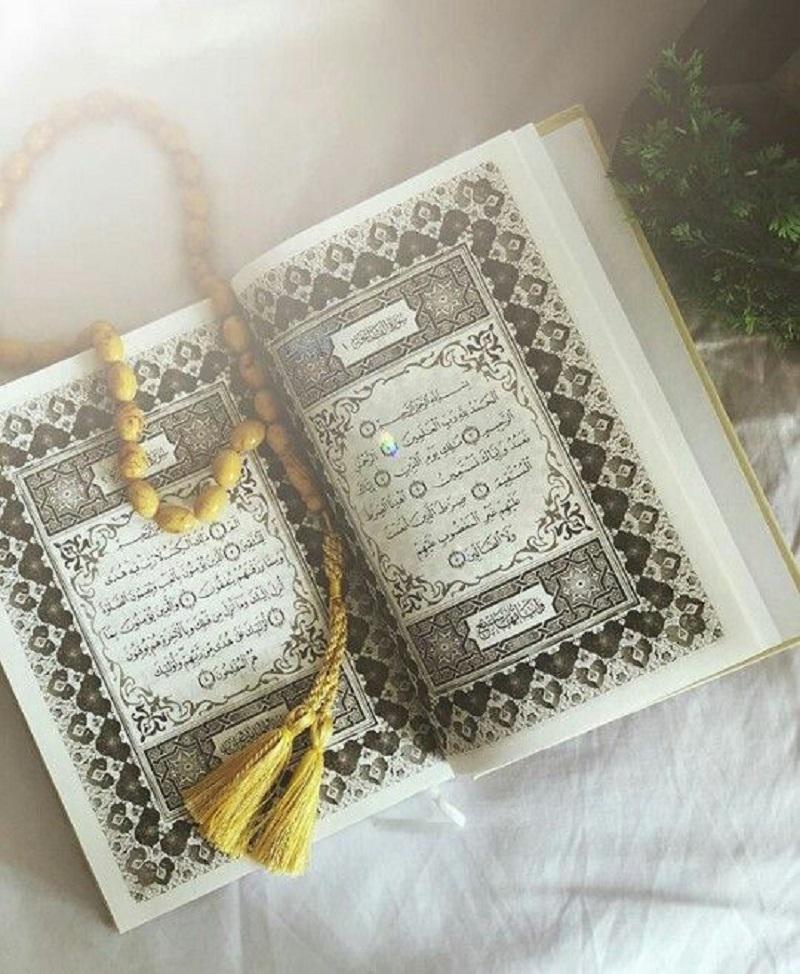 سُورَةُ الفَاتِحَةِ
بِسْمِ اللَّهِ الرَّحْمَٰنِ الرَّحِيمِ ١
الْحَمْدُ لِلَّهِ رَبِّ الْعَالَمِينَ ٢ الرَّحْمَٰنِ
الرَّحِيمِ ٣ مَالِكِ يَوْمِ الدِّينِ ٤ إِيَّاكَ
نَعْبُدُ وَإِيَّاكَ نَسْتَعِينُ ٥ اهْدِنَا الصِّرَاطَ
الْمُسْتَقِيمَ ٦ صِرَاطَ الَّذِينَ أَنْعَمْتَ
عَلَيْهِمْ غَيْرِ الْمَغْضُوبِ عَلَيْهِمْ
وَلَا الضَّالِّينَ ٧
سُورَةُ
الٓمٓ ١ ذَٰلِكَ الْكِتَابُ لَا رَيْبَ فِيهِ هُدًى
لِلْمُتَّقِينَ ٢ الَّذِينَ يُؤْمِنُونَ بِالْغَيْبِ وَيُقِيمُونَ الصَّلَاةَ
وَمِمَّا رَزَقْنَاهُمْ يُنْفِقُونَ ٣ وَالَّذِينَ يُؤْمِنُونَ بِمَا
أُنْزِلَ إِلَيْكَ وَمَا أُنْزِلَ مِنْ قَبْلِكَ وَبِالْآخِرَةِ هُمْ يُوقِنُونَ ٤
أُولَٰئِكَ عَلَىٰ هُدًى مِنْ رَبِّهِمْ وَأُولَٰئِكَ
هُمُ الْمُفْلِحُونَ ٥